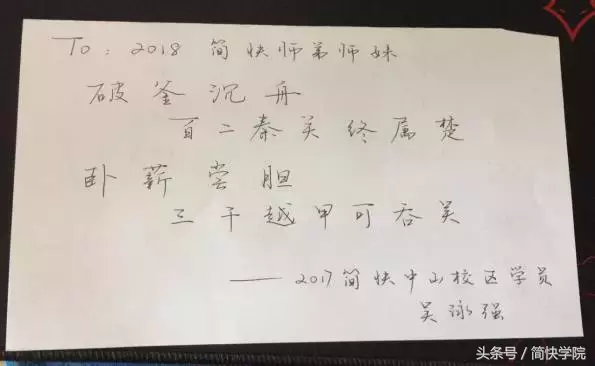 To: 2018 简快师弟师妹
破釜沉舟
百二秦关终属楚
卧薪尝胆
三千越甲可吞吴
——2017简快中山校区学员
吴泳强
头条号 / 简快学院